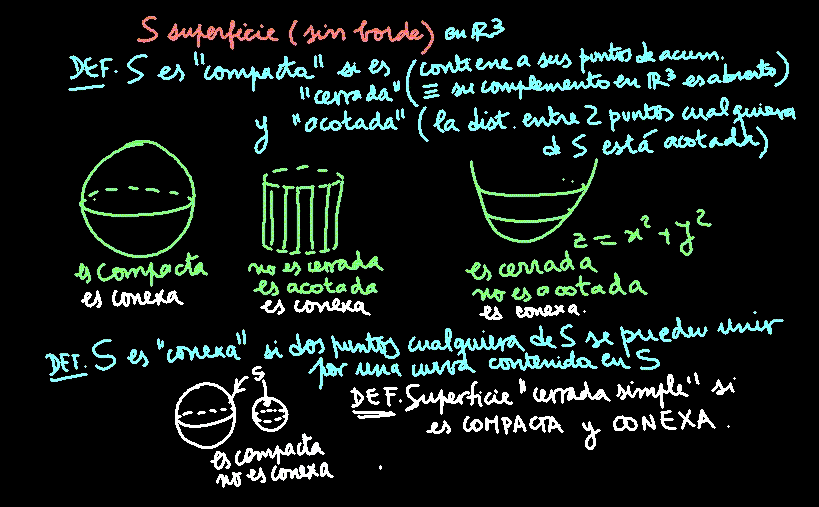 S superficie (sin borde) en R³
DEF. S es "compacta" si es (contiene a sus puntos de acum.
"cerrada" ≡ su complemento en R³ es abierto)
y "acotada" (la dist. entre 2 puntos cualquiera
de S está acotada)
z = x² + y²
es compacta
es conexa
no es cerrada
es acotada
es conexa
es cerrada
no es acotada
es conexa.
DEF. S es "conexa" si dos puntos cualquiera de S se pueden unir
por una curva contenida en S
S
es compacta
no es conexa
DEF. Superficie "cerrada simple" si
es COMPACTA y CONEXA.